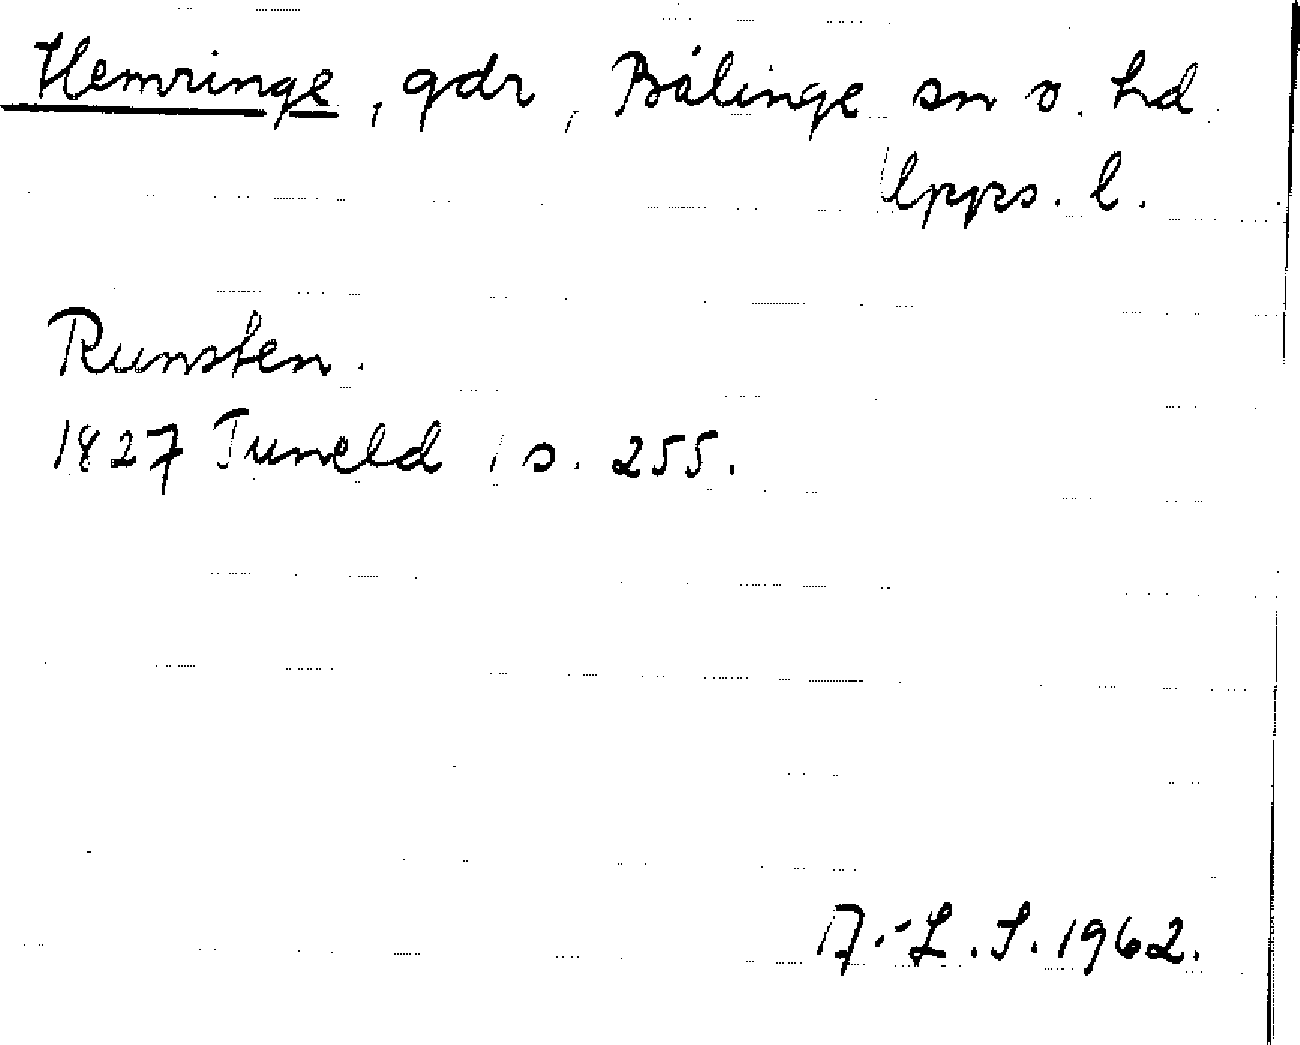 Hemringe, gdr, Bälinge sn o. hd.
Upps. l.
Runsten.
1827 Tuneld 1 s. 255.
A.-L. S. 1962.